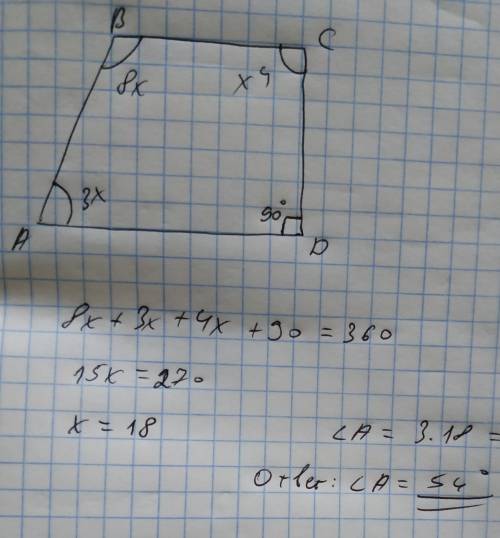 B
C
8x
x4
3x
90°
A
D
8x + 3x + 4x + 90 = 360
15x = 270
x = 18
∠A = 3·18 =
Ответ: ∠A = 54°